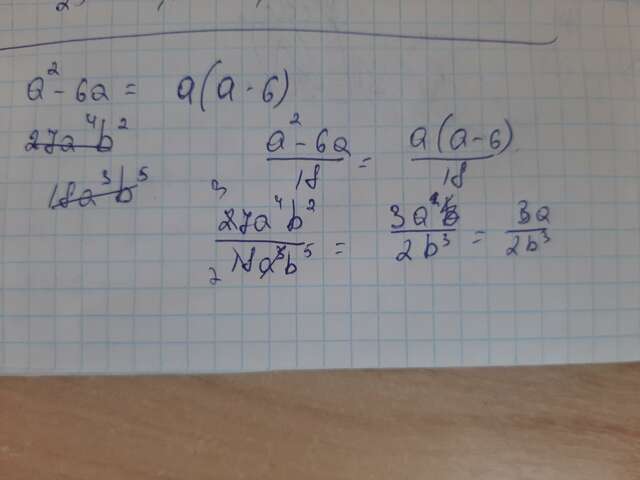 a² - 6a = a(a - 6)
27a⁴b²
18a³b⁵
a² - 6a / 18 = a(a - 6) / 18
27a⁴b² / 18a³b⁵ = 3a / 2b³ = 3a / 2b³